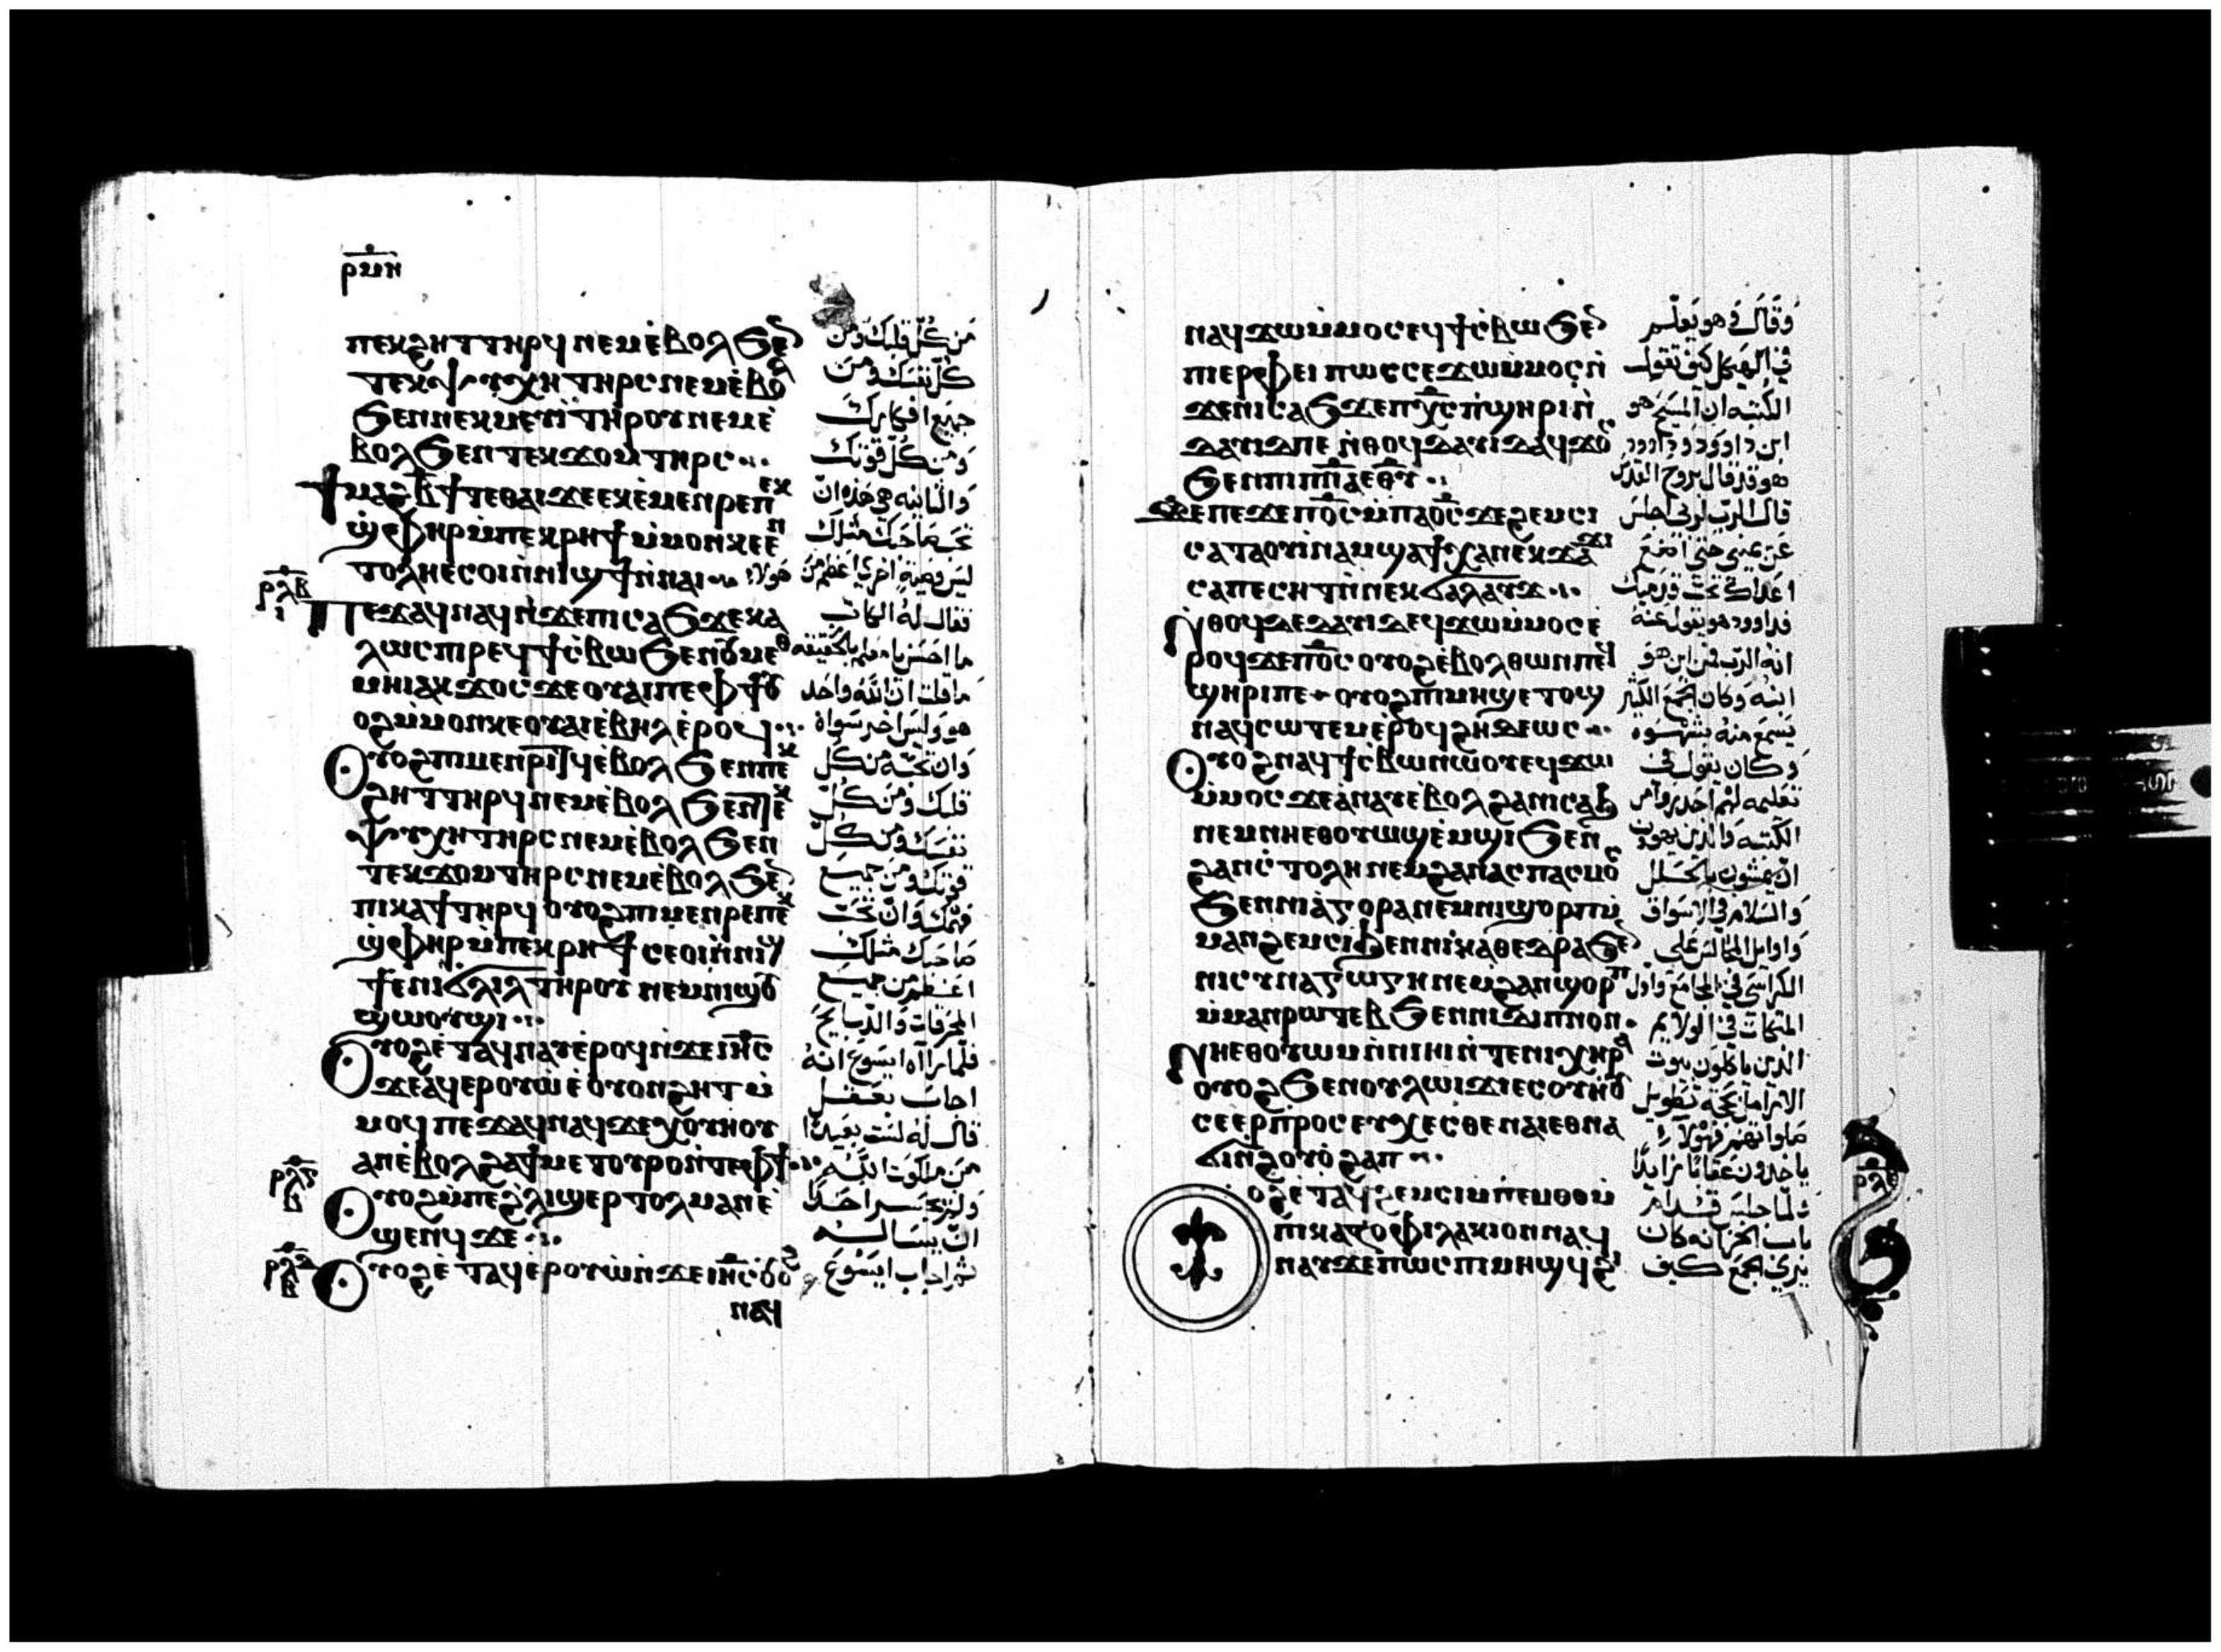 ⲣⲙⲏ
ⲡⲉⲕϩⲏⲧ ⲧⲏⲣϥ ⲛⲉⲙ ⲉ̀ⲃⲟⲗ ϧⲉⲛ
ⲧⲉⲕⲯⲩⲭⲏ ⲧⲏⲣⲥ ⲛⲉⲙ ⲉ̀ⲃⲟⲗ
ϧⲉⲛ ⲛⲉⲕⲙⲉⲩⲓ̀ ⲧⲏⲣⲟⲩ ⲛⲉⲙ ⲉ̀
ⲃⲟⲗ ϧⲉⲛ ⲧⲉⲕϫⲟⲙ ⲧⲏⲣⲥ
ϯⲙⲁϩⲃ̅ϯ ⲧⲉ ⲑⲁⲓ ϫⲉ ⲉⲕⲉ̀ⲙⲉⲛⲣⲉ ⲡⲉⲕ
ϣ̀ⲫⲏⲣ ⲙ̀ⲡⲉⲕⲣⲏϯ ⲙ̀ⲙⲟⲛ ⲕⲉ ⲉⲛ
ⲧⲟⲗⲏ ⲉⲥⲟⲓ ⲛ̀ⲛⲓϣϯ ⲛ̀ⲛⲁⲓ
ⲣⲗⲃ ⲓ
ⲡⲉϫⲁϥ ⲛⲁϥ ⲛ̀ϫⲉ ⲡⲓⲥⲁϧ ϫⲉ ⲕⲁ
ⲗⲱⲥ ⲡⲓⲣⲉϥϯⲥ̀ⲃⲱ ϧⲉⲛ ⲟⲩⲙⲉⲑ
ⲙⲏⲓ ⲁⲕϫⲟⲥ ϫⲉ ⲟⲩⲁⲓ ⲡⲉ ⲫϯ ⲟⲩ
ⲟϩ ⲙ̀ⲙⲟⲛ ⲕⲉⲟⲩⲁⲓ ⲉ̀ⲃⲏⲗ ⲉ̀ⲣⲟϥ
ⲟⲩⲟϩ ⲡⲓⲙⲉⲛⲣⲓⲧϥ ⲉ̀ⲃⲟⲗ ϧⲉⲛ ⲡⲉⲕ
ϩⲏⲧ ⲧⲏⲣϥ ⲛⲉⲙ ⲉ̀ⲃⲟⲗ ϧⲉⲛ ⲧⲉⲕ
ⲯⲩⲭⲏ ⲧⲏⲣⲥ ⲛⲉⲙ ⲉ̀ⲃⲟⲗ ϧⲉⲛ
ⲧⲉⲕϫⲟⲙ ⲧⲏⲣⲥ ⲛⲉⲙ ⲉ̀ⲃⲟⲗ ϧⲉⲛ
ⲡⲓⲕⲁϯ ⲧⲏⲣϥ ⲟⲩⲟϩ ⲡⲓⲙⲉⲛⲣⲉ ⲡⲉⲕ
ϣ̀ⲫⲏⲣ ⲙ̀ⲡⲉⲕⲣⲏϯ ⲥⲉⲟⲓ ⲛ̀ⲛⲓϣ
ϯ ⲉⲛⲓϭⲗⲓⲗ ⲧⲏⲣⲟⲩ ⲛⲉⲙ ⲛⲓϣⲟⲩ
ϣⲱⲟⲩϣⲓ
ⲟⲩⲟϩ ⲉ̀ⲧⲁϥⲛⲁⲩ ⲉ̀ⲣⲟϥ ⲛ̀ϫⲉ ⲓⲏⲥ
ϫⲉ ⲁ̀ϥⲉⲣⲟⲩⲱ̀ ⲉ̀ⲟⲩⲟⲛ ϩⲏⲧ ⲙ̀
ⲙⲟϥ ⲡⲉϫⲁϥ ⲛⲁϥ ϫⲉ ⲭⲟⲩⲏⲟⲩ
ⲁⲛ ⲉ̀ⲃⲟⲗ ϩⲁ ϯⲙⲉⲧⲟⲩⲣⲟ ⲛ̀ⲧⲉ ⲫϯ
ⲟⲩⲟϩ ⲙ̀ⲡⲉ ϩ̀ⲗⲓ ϣⲉⲣⲧⲟⲗⲙⲁⲛ ⲉ̀
ϣⲉⲛϥ ϫⲉ
ⲟⲩⲟϩ ⲉ̀ⲧⲁϥⲉ̀ⲣⲟⲩⲱ̀ ⲛ̀ϫⲉ ⲓⲏⲥ
ⲛⲁϥ
من كل قلبك ومن
كل نفسك ومن
جميع افكارك
ومن كل قوتك
والثانيه هى هذه ان
تحب صاحبك مثلك
ليس وصية اخرى اعظم من هولاء
فقال له الكاتب
ما احسن يا معلم بالحقيقه
ما قلت ان الله واحد
هو وليس اخر سواه
وان تحبه من كل
قلبك ومن كل
نفسك ومن كل
قوتك ومن جميع
فهمك وان تحب
صاحبك مثلك
اعظم من جميع
المحرقات والذبايح
فلما راه ايسوع انه
اجاب بعقل
قال له لست بعيدًا
من ملكوت الله
ولم يجسر احد
ان يساله
ثم اجاب ايسوع
ⲛⲁϥϫⲱ ⲙ̀ⲙⲟⲥ ⲉϥϯⲥ̀ⲃⲱ ϧⲉⲛ
ⲡⲓⲉⲣⲫⲉⲓ ⲡⲱⲥ ⲥⲉϫⲱ ⲙ̀ⲙⲟⲥ ⲛ̀
ϫⲉ ⲛⲓⲥⲁϧ ϫⲉ ⲡⲭⲥ ⲡ̀ϣⲏⲣⲓ ⲛ̀
ⲇⲁⲩⲓⲇ ⲡⲉ ⲛ̀ⲑⲟϥ ⲇⲁⲩⲓⲇ ⲁϥϫⲟⲥ
ϧⲉⲛ ⲡⲓⲡⲛⲁ ⲉⲑⲩ
ϫⲉ ⲡⲉϫⲉ ⲡⲟⲥ ⲙ̀ⲡⲁⲟⲥ ϫⲉ ϩⲉⲙⲥⲓ
ⲥⲁⲧⲁⲟⲩⲓⲛⲁⲙ ϣⲁϯⲭⲁ ⲛⲉⲕϫⲁϫⲓ
ⲥⲁⲡⲉⲥⲏⲧ ⲛ̀ⲛⲉⲕϭⲁⲗⲁⲩϫ
ⲛ̀ⲑⲟϥ ϫⲉ ⲇⲁⲩⲓⲇ ⲉϥϫⲱ ⲙ̀ⲙⲟⲥ ⲉ̀
ⲣⲟϥ ϫⲉ ⲡⲟⲥ ⲟⲩⲟϩ ⲉ̀ⲃⲟⲗ ⲑⲱⲛ ⲡⲉϥ
ϣⲏⲣⲓ ⲡⲉ ⲟⲩⲟϩ ⲡⲓⲙⲏϣ ⲉⲧⲟϣ
ⲛⲁϥⲥⲱⲧⲉⲙ ⲉ̀ⲣⲟϥ ϩⲏⲇⲉⲱⲥ
ⲟⲩⲟϩ ⲛⲁϥϯⲥ̀ⲃⲱ ⲛⲱⲟⲩ ⲉϥϫⲱ
ⲙ̀ⲙⲟⲥ ϫⲉ ⲁ̀ⲛⲁⲩ ⲉ̀ⲃⲟⲗ ϩⲁ ⲛⲓⲥⲁϧ
ⲛⲉⲙ ⲛⲏⲉⲑⲟⲩⲱϣ ⲉ̀ⲙϣⲓ ϧⲉⲛ
ϩⲁⲛⲥ̀ⲧⲟⲗⲏ ⲛⲉⲙ ϩⲁⲛⲁⲥⲡⲁⲥⲙⲟⲥ
ϧⲉⲛ ⲛⲓⲁ̀ⲅⲟⲣⲁ ⲛⲉⲙ ⲛⲓϣⲟⲣⲡ ⲙ̀
ⲙⲁⲛϩⲉⲙⲥⲓ ϩⲓ ⲛⲓⲕⲁⲑⲉⲇⲣⲁ ϧⲉⲛ
ⲛⲓⲥⲩⲛⲁⲅⲱⲅⲏ ⲛⲉⲙ ϩⲁⲛϣⲟⲣⲡ
ⲙ̀ⲙⲁⲛⲣⲱⲧⲉⲃ ϧⲉⲛ ⲛⲓⲇⲓⲡⲛⲟⲛ
ⲛⲏⲉⲑⲟⲩⲱⲙ ⲛ̀ⲛⲓⲏⲓ ⲛ̀ⲧⲉ ⲛⲓⲭⲏⲣⲁ
ⲟⲩⲟϩ ϧⲉⲛ ⲟⲩⲗⲱⲓϫⲓ ⲉⲥⲟⲩⲏⲟⲩ
ⲥⲉⲉⲣⲡⲣⲟⲥⲉⲩⲭⲉⲥⲑⲉ ⲛⲁⲓ ⲉⲑⲛⲁ
ϭⲓ ⲛ̀ϩⲟⲩⲟ̀ ϩⲁⲡ
ⲟϩ ⲉ̀ⲧⲁϥϩⲉⲙⲥⲓ ⲙ̀ⲡⲉⲙⲑⲟ ⲙ̀
ⲡⲓⲕⲁⲍⲟⲫⲓⲗⲁⲕⲓⲟⲛ ⲛⲁϥ
ⲛⲁⲩ ϫⲉ ⲡⲱⲥ ⲡⲓⲙⲏϣ ϥϩⲓ
وقال وهو يعلم
في الهيكل كيف تقول
الكتبه ان المسيح هو
ابن داوود وداوود
هو قد قال بروح القدس
قال الرب لربى اجلس
عن يمينى حتى اضع
اعداك تحت قدميك
فداوود هو يقول عنه
انه الرب فمن اين هو
ابنه وكان الجمع الكثير
يسمع منه بشهوه
وكان يقول فى
تعليمه لهم احذروا من
الكتبه والذين يهوون
ان يمشون بالحلل
والسلام في الاسواق
واوايل المجالس على
الكراسى في المجامع واول
المتكات في الولايم
الذين ياكلون بيوت
الارامل بحجه تطويل
صلواتهم فهولاء
ياخذون عقابًا زايدًا
ولما جلس قدام
باب الخزانه كان
يرى الجمع كيف
ⲣⲗⲉ